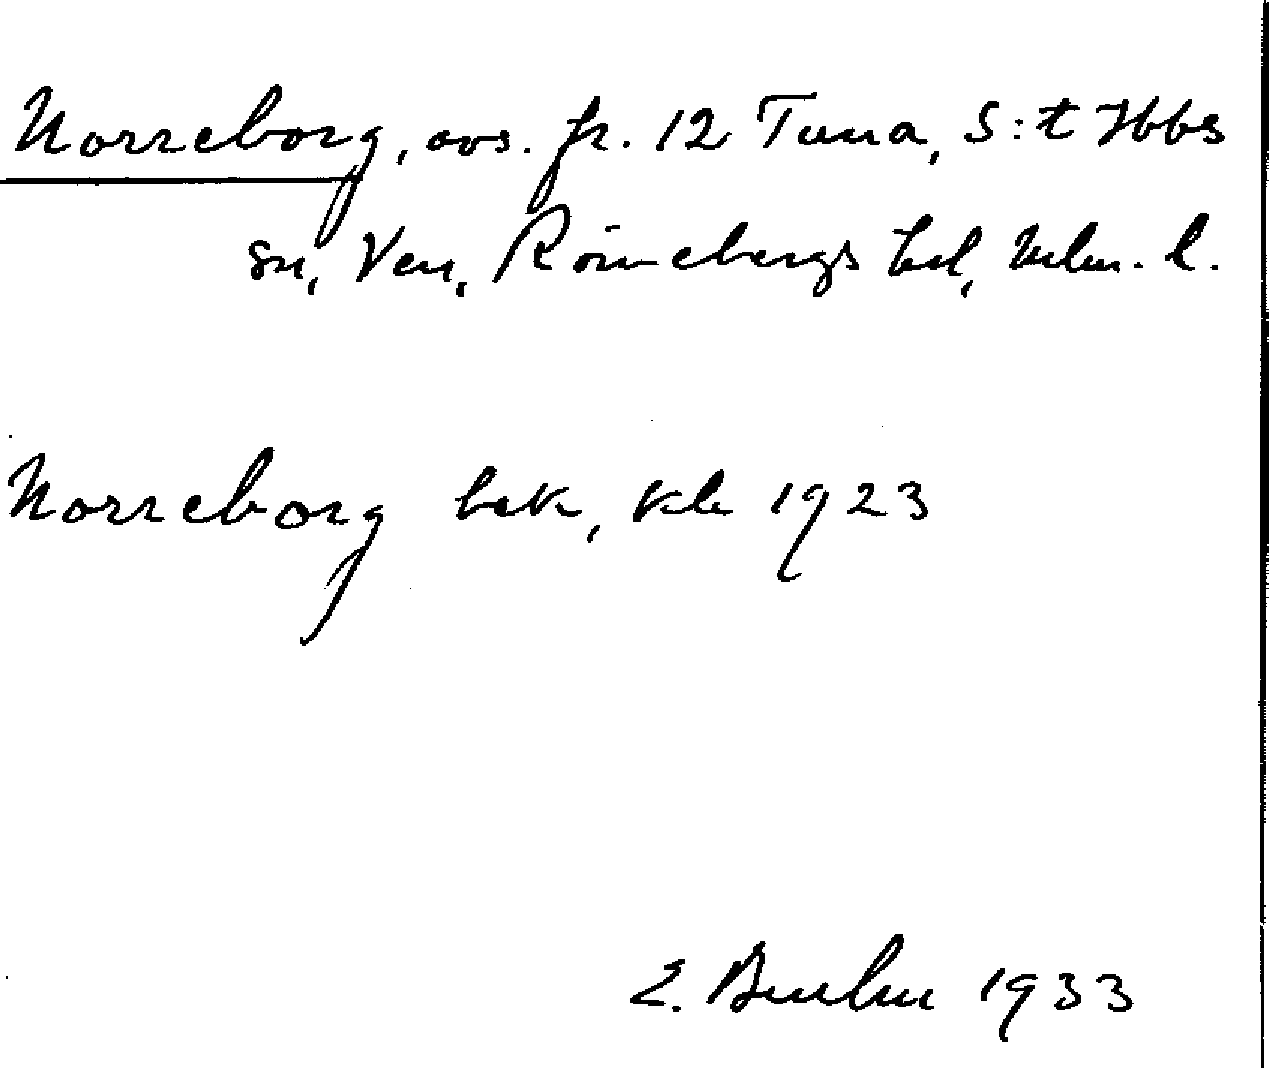 Norreborg, avs. fr. 12 Tuna, S:t Ibbs
sn, Ven, Rönnebergs hd, Mlm. l.
Norreborg bek, kb 1923
E. 1933